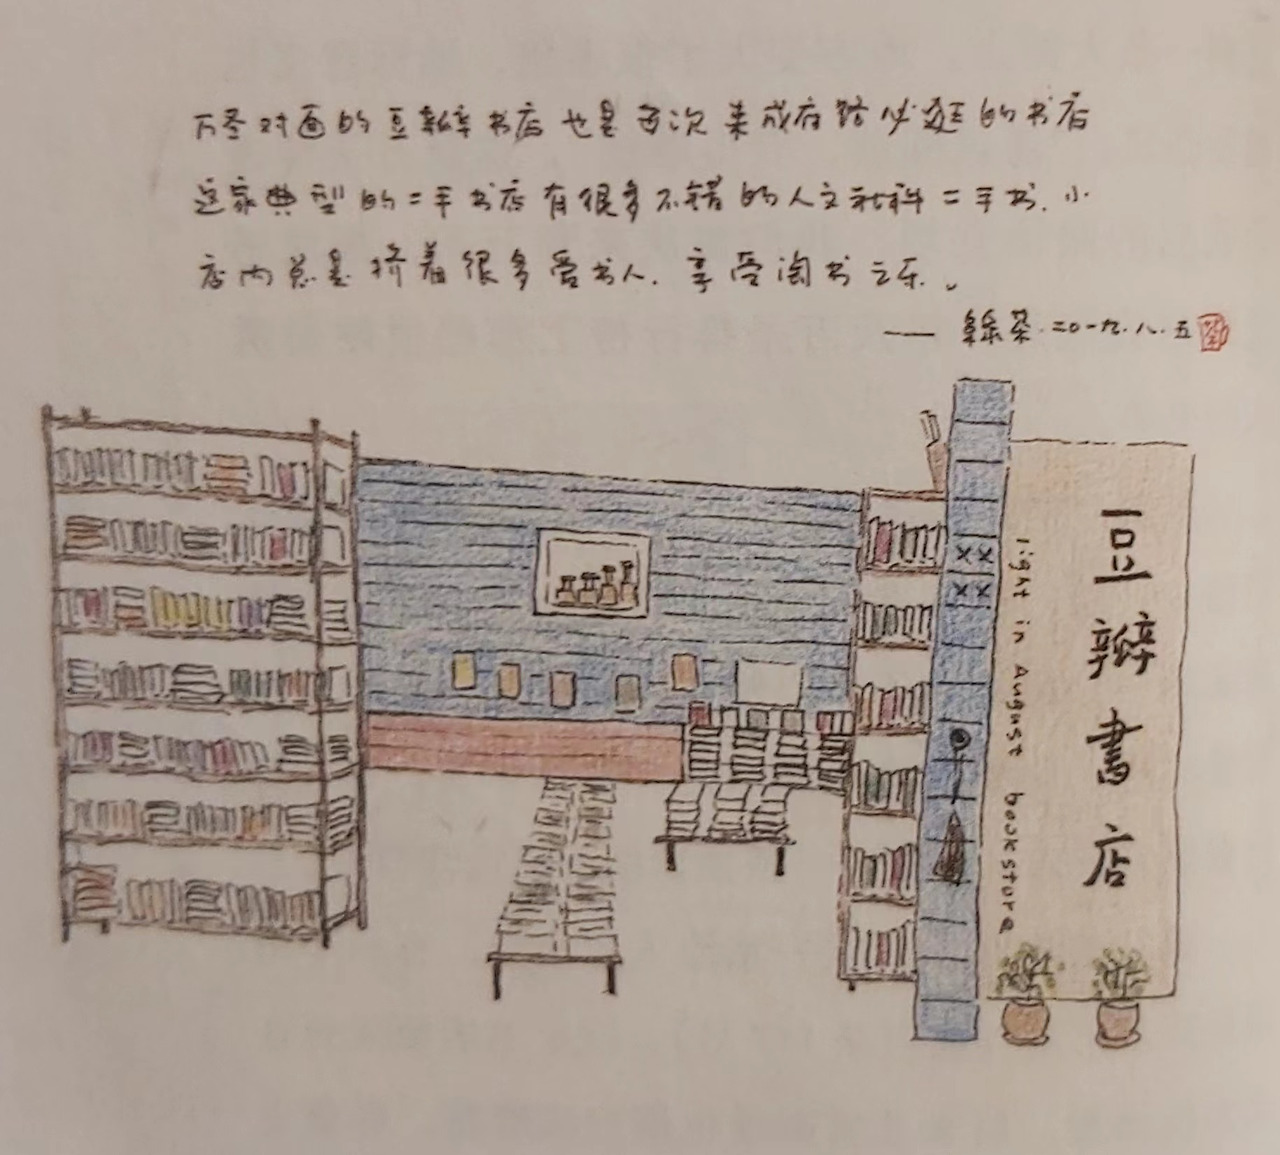 万圣对面的豆瓣书店也是每次来成府路必逛的书店
这家典型的二手书店有很多不错的人文社科二手书.小
店内总是挤着很多爱书人.享受淘书之乐。
—— 绿茶.二〇一九.八.五
豆瓣書店
light in August bookstore